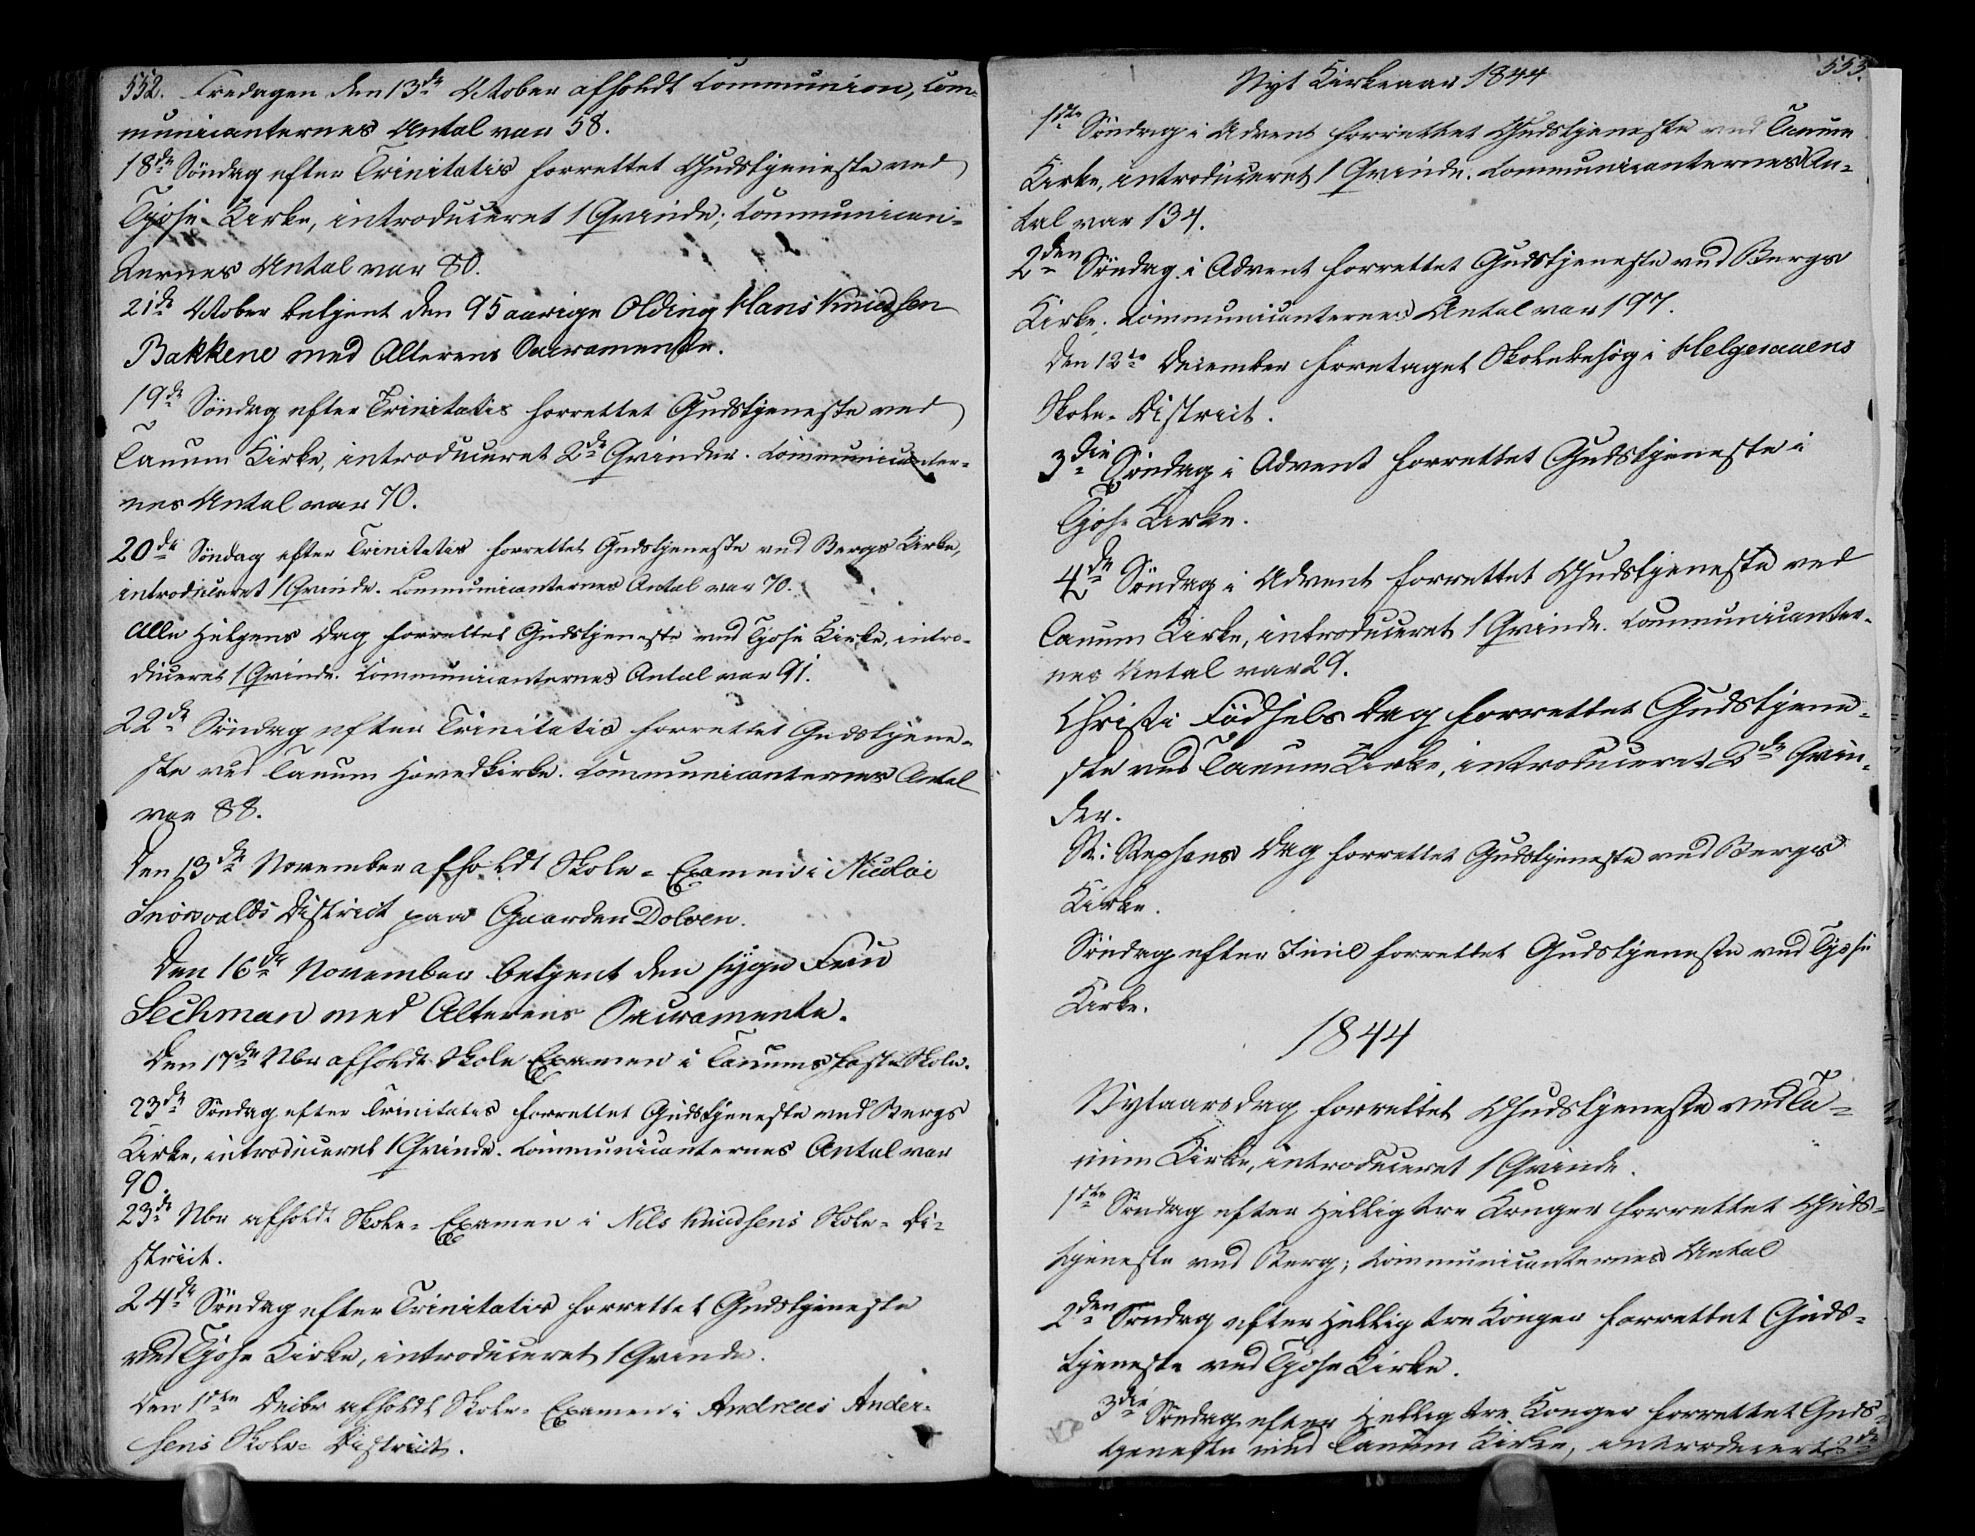 552. Fredagen den 13de October afholdt Communion, Com-
municanternes Antal var 58.
18de Søndag efter Trinitatis forrettet Gudstjeneste ved
Tjose Kirke, introduceret 1 Qvinde; Communican-
ternes Antal var 80.
21de October betjent den 95 aarige Olding Hans Knudsen
Bakkene med Alterens Sacramente.
19de Søndag efter Trinitatis forrettet Gudstjeneste ved
Tanum Kirke, introduceret 2de Qvinder. Communicanter-
nes Antal var 70.
20de Søndag efter Trinitatis forrettet Gudstjeneste ved Bergs Kirke,
introduceret 1 Qvinde. Communicanternes Antal var 70.
Alle Helgens Dag forrettet Gudstjeneste ved Tjose Kirke, intro-
duceret 1 Qvinde. Communicanternes Antal var 91.
22de Søndag efter Trinitatis forrettet Gudstjene-
ste ved Tanum Hovedkirke. Communicanternes Antal
var 88.
Den 13de November afholdt Skole-Examen i Nicolai
District paa Gaarden Dolven.
Den 16de November betjent den syge Fru
Sechman med Alterens Sacramente.
Den 17de Nbr afholdt Skole Examen i Tanums faste Skole.
23de Søndag efter Trinitatis forrettet Gudstjeneste ved Bergs
Kirke, introduceret 1 Qvinde. Communicanternes Antal var
90.
23de Nbr afholdt Skole-Examen i Nils Knudsens Skole-Di-
strict.
24de Søndag efter Trinitatis forrettet Gudstjeneste
ved Tjose Kirke, introduceret 1 Qvinde.
Den 1ste Decbr afholdt Skole-Examen i Andreas Ander-
sens Skole-District.
553.
Nyt Kirkeaar 1844
1ste Søndag i Advent forrettet Gudstjeneste ved Tanum
Kirke, introduceret 1 Qvinde. Communicanternes An-
tal var 134.
2den Søndag i Advent forrettet Gudstjeneste ved Bergs
Kirke. Communicanternes Antal var 197.
Den 12te December foretaget Skolebesøg i Helgeraaens
Skole-District.
3die Søndag i Advent forrettet Gudstjeneste i
Tjose Kirke.
4de Søndag i Advent forrettet Gudstjeneste ved
Tanum Kirke, introduceret 1 Qvinde. Communicanter-
nes Antal var 29.
Christi Fødsels Dag forrettet Gudstjene-
ste ved Tanum Kirke, introduceret 2de Qvin-
der.
St: Stephans Dag forrettet Gudstjeneste ved Bergs
Kirke.
Søndag efter Juul forrettet Gudstjeneste ved Tjose
Kirke.
1844
Nytaarsdag forrettet Gudstjeneste ved Ta-
num Kirke, introduceret 1 Qvinde.
1ste Søndag efter Hellig tre Konger forrettet Guds-
tjeneste ved Berg; Communicanternes Antal
2den Søndag efter Hellig tre Konger forrettet Guds-
tjeneste ved Tjose Kirke.
3die Søndag efter Hellig tre Konger forrettet Guds-
tjeneste ved Tanum Kirke, introduceret 2de